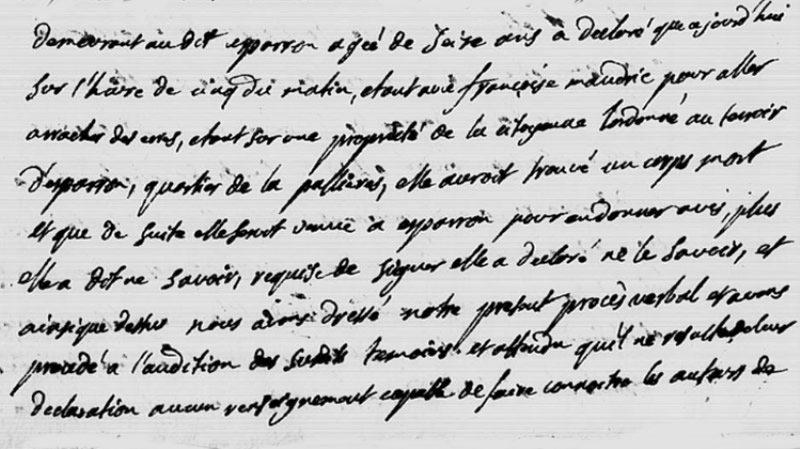 demeurant au dit esparron agée de seize ans a declaré que ajourd'hui
sur l'hûre de cinq du matin, etant avec françoise maudric pour aller
arracher des eres, etant sur une propriété de la citoyenne Lordonné au terroir
d'esparron, quartier de la pallieres, elle auroit trouvé un corps mort
et que de suite elle seroit venuë a esparron pour en donner avis, plus
elle a dit ne savoir, requise de signer elle a declaré ne le savoir, et
ainsi que dessus nous avons dressé notre present procès verbal et avons
procedé a l'audition des susdits temoins et attendu qu'il ne resulte de leur
declaration aucun renseignement capable de faire connoitre les auteurs de